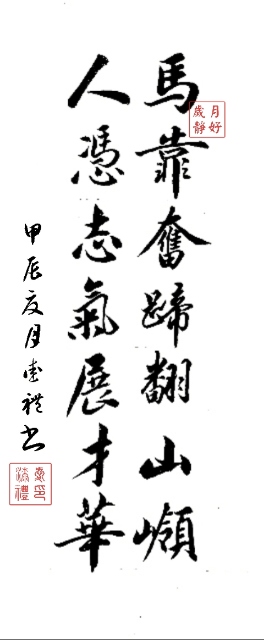 馬靠奮蹄翻山嶺
人憑志氣展才華
甲辰夏月禮书
歲月
靜好